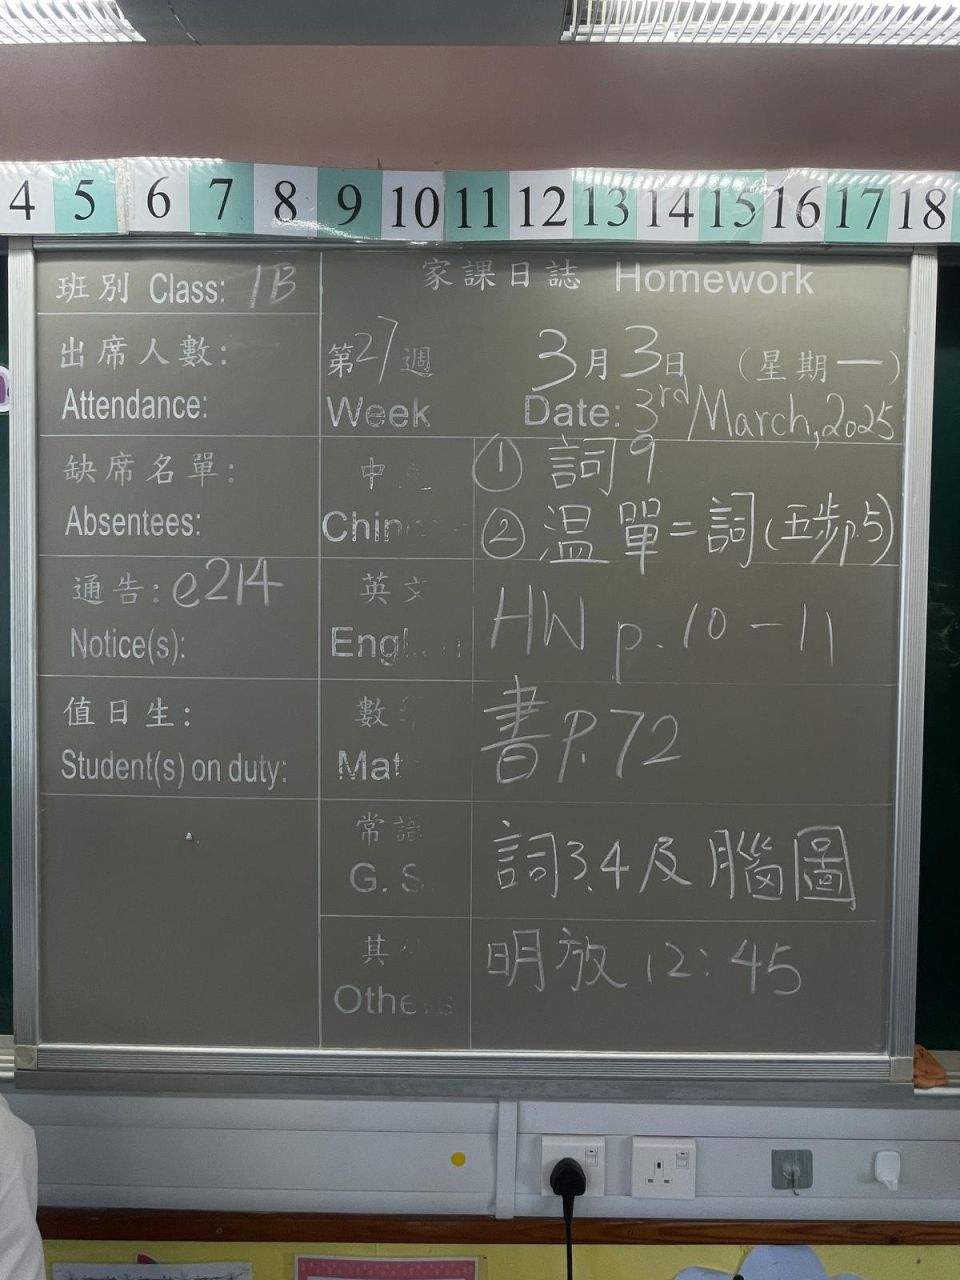 4 5 6 7 8 9 10 11 12 13 14 15 16 17 18
班別 Class: 1B
家課日誌 Homework
出席人數:
Attendance:
第27週 3月3日 (星期一)
Week Date: 3rd March, 2025
缺席名單:
Absentees:
中
Chin
① 詞9
② 温單=詞(五步p.5)
通告: e214
Notice(s):
英文
Engl
HW p.10-11
值日生:
Student(s) on duty:
數
Mat
書P.72
常識
G. S
詞3.4及腦圖
其
Others
明放 12:45